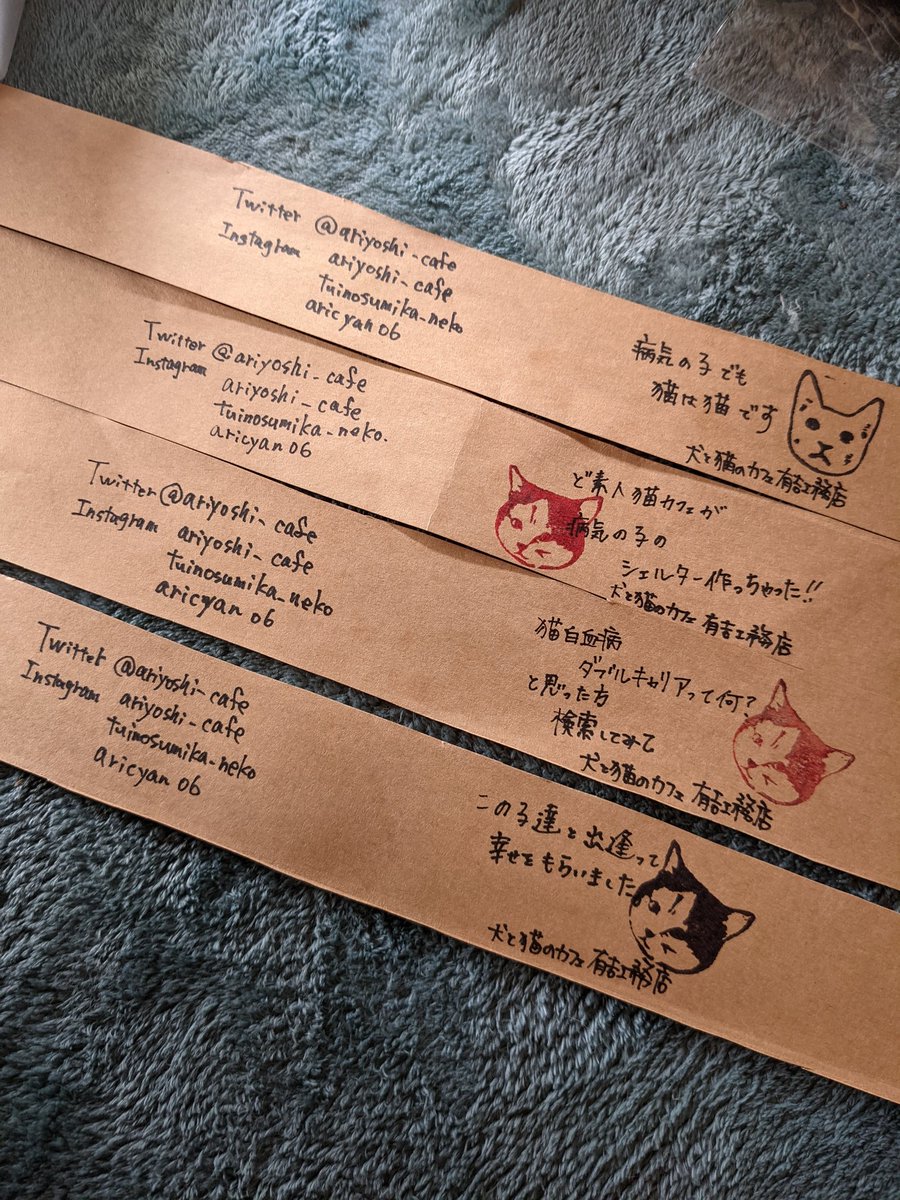 Twitter @ariyoshi_cafe
Instagram ariyoshi_cafe
tuinosumika_neko
aricyan06
病気の子でも
猫は猫です
犬と猫のカフェ有吉工務店
Twitter @ariyoshi_cafe
Instagram ariyoshi_cafe
tuinosumika_neko.
aricyan06
ど素人猫カフェが
病気の子の
シェルター作っちゃった!!
犬と猫のカフェ 有吉工務店
Twitter @ariyoshi_cafe
Instagram ariyoshi_cafe
tuinosumika_neko
aricyan06
猫白血病
ダブルキャリアって何?
と思った方
検索してみて
犬と猫のカフェ 有吉工務店
Twitter @ariyoshi_cafe
Instagram ariyoshi_cafe
tuinosumika_neko
aricyan06
この子達と出逢って
幸せをもらいました
犬と猫のカフェ 有吉工務店